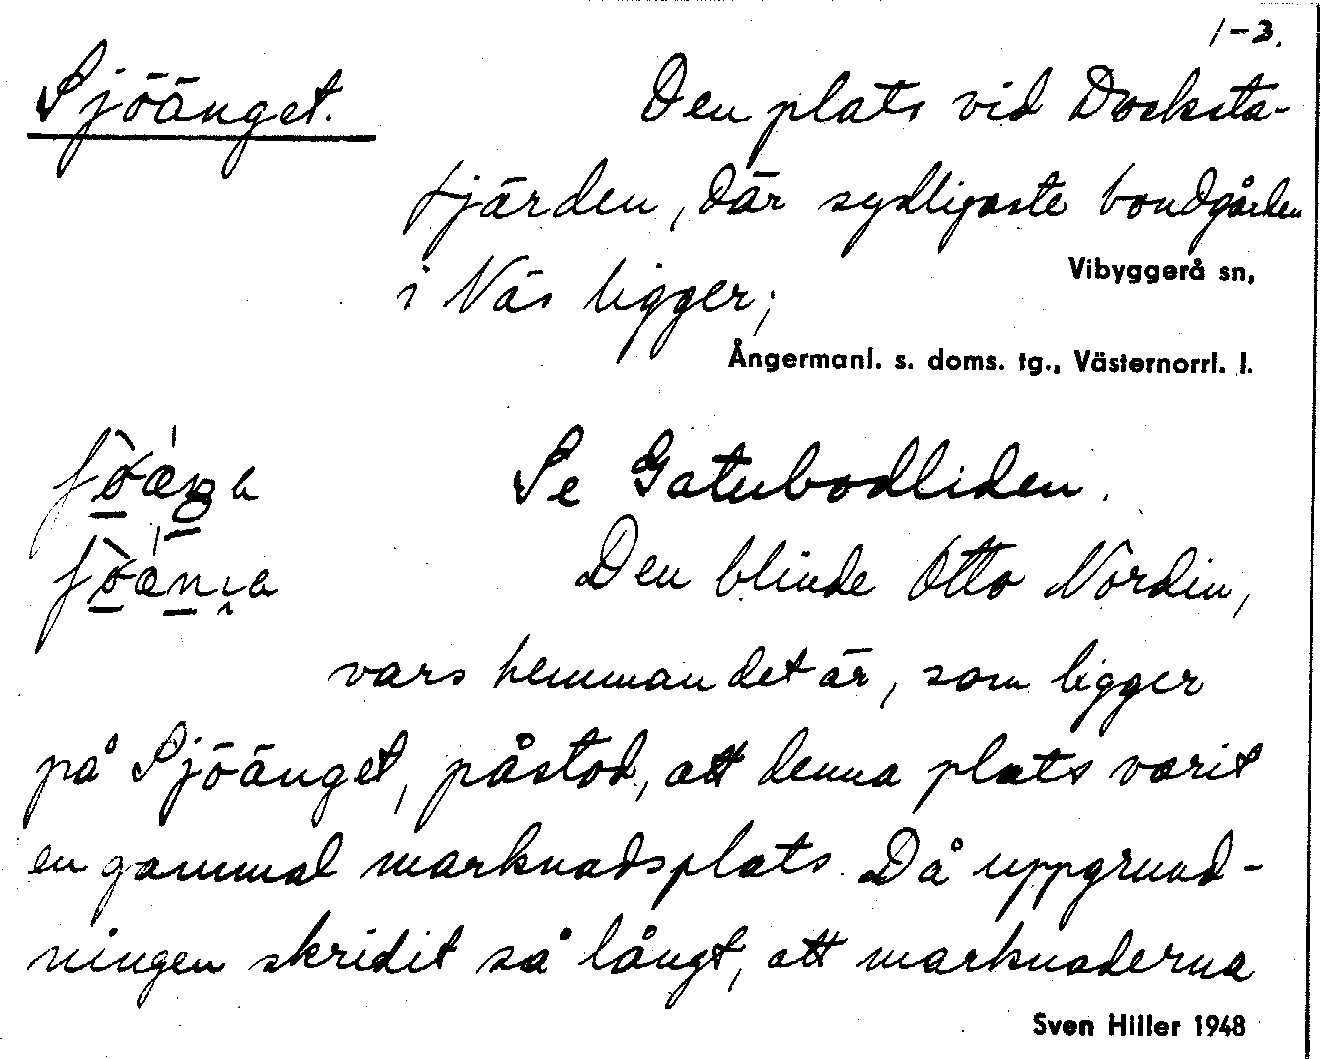 1-3.
Sjöänget. Den plats vid Docksta-
fjärden, där sydligaste bondgården
i Näs ligger;
Vibyggerå sn,
Ångermanl. s. doms. tg., Västernorrl. l.
Se Gatubodliden.
Den blinde Otto Nordin,
vars hemman det är, som ligger
på Sjöänget, påstod, att denna plats varit
en gammal marknadsplats. Då uppgrund-
ningen skridit så långt, att marknaderna
Sven Hiller 1948